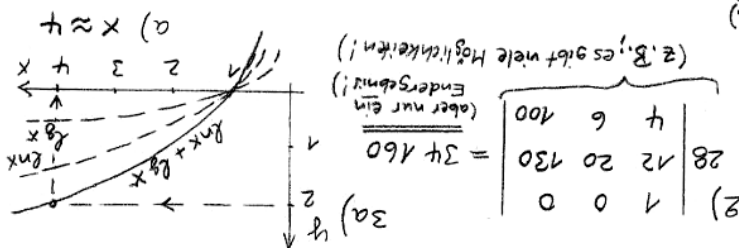 2) 28 | 1 0 0 |
| 12 20 130 | = 34 160
| 4 6 100 |
(aber nur ein
Endergebnis!)
(z.B.; es gibt viele Möglichkeiten!)
3a)
y
2
1
ln x + lg x
ln x
lg x
1 2 3 4 x
a) x ≈ 4